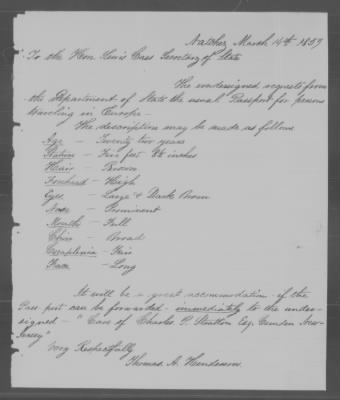 Natchez March 14th 1859
To the Hon. Lewis Cass Secretary of State
The undersigned requests from
the Department of State the usual Passport for persons
traveling in Europe -
The description may be made as follows
Age - Twenty two years
Stature - Five feet 8½ inches
Hair - Brown
Forehead - High
Eyes - Large & Dark Brown
Nose - Prominent
Mouth - Full
Chin - Broad
Complexion - Fair
Face - Long
It will be a great accommodation if the
Pass port can be forwarded immediately to the under-
signed - "Care of Charles P. Stratton Esq. Camden New-
Jersey"
Very Respectfully
Thomas A. Henderson